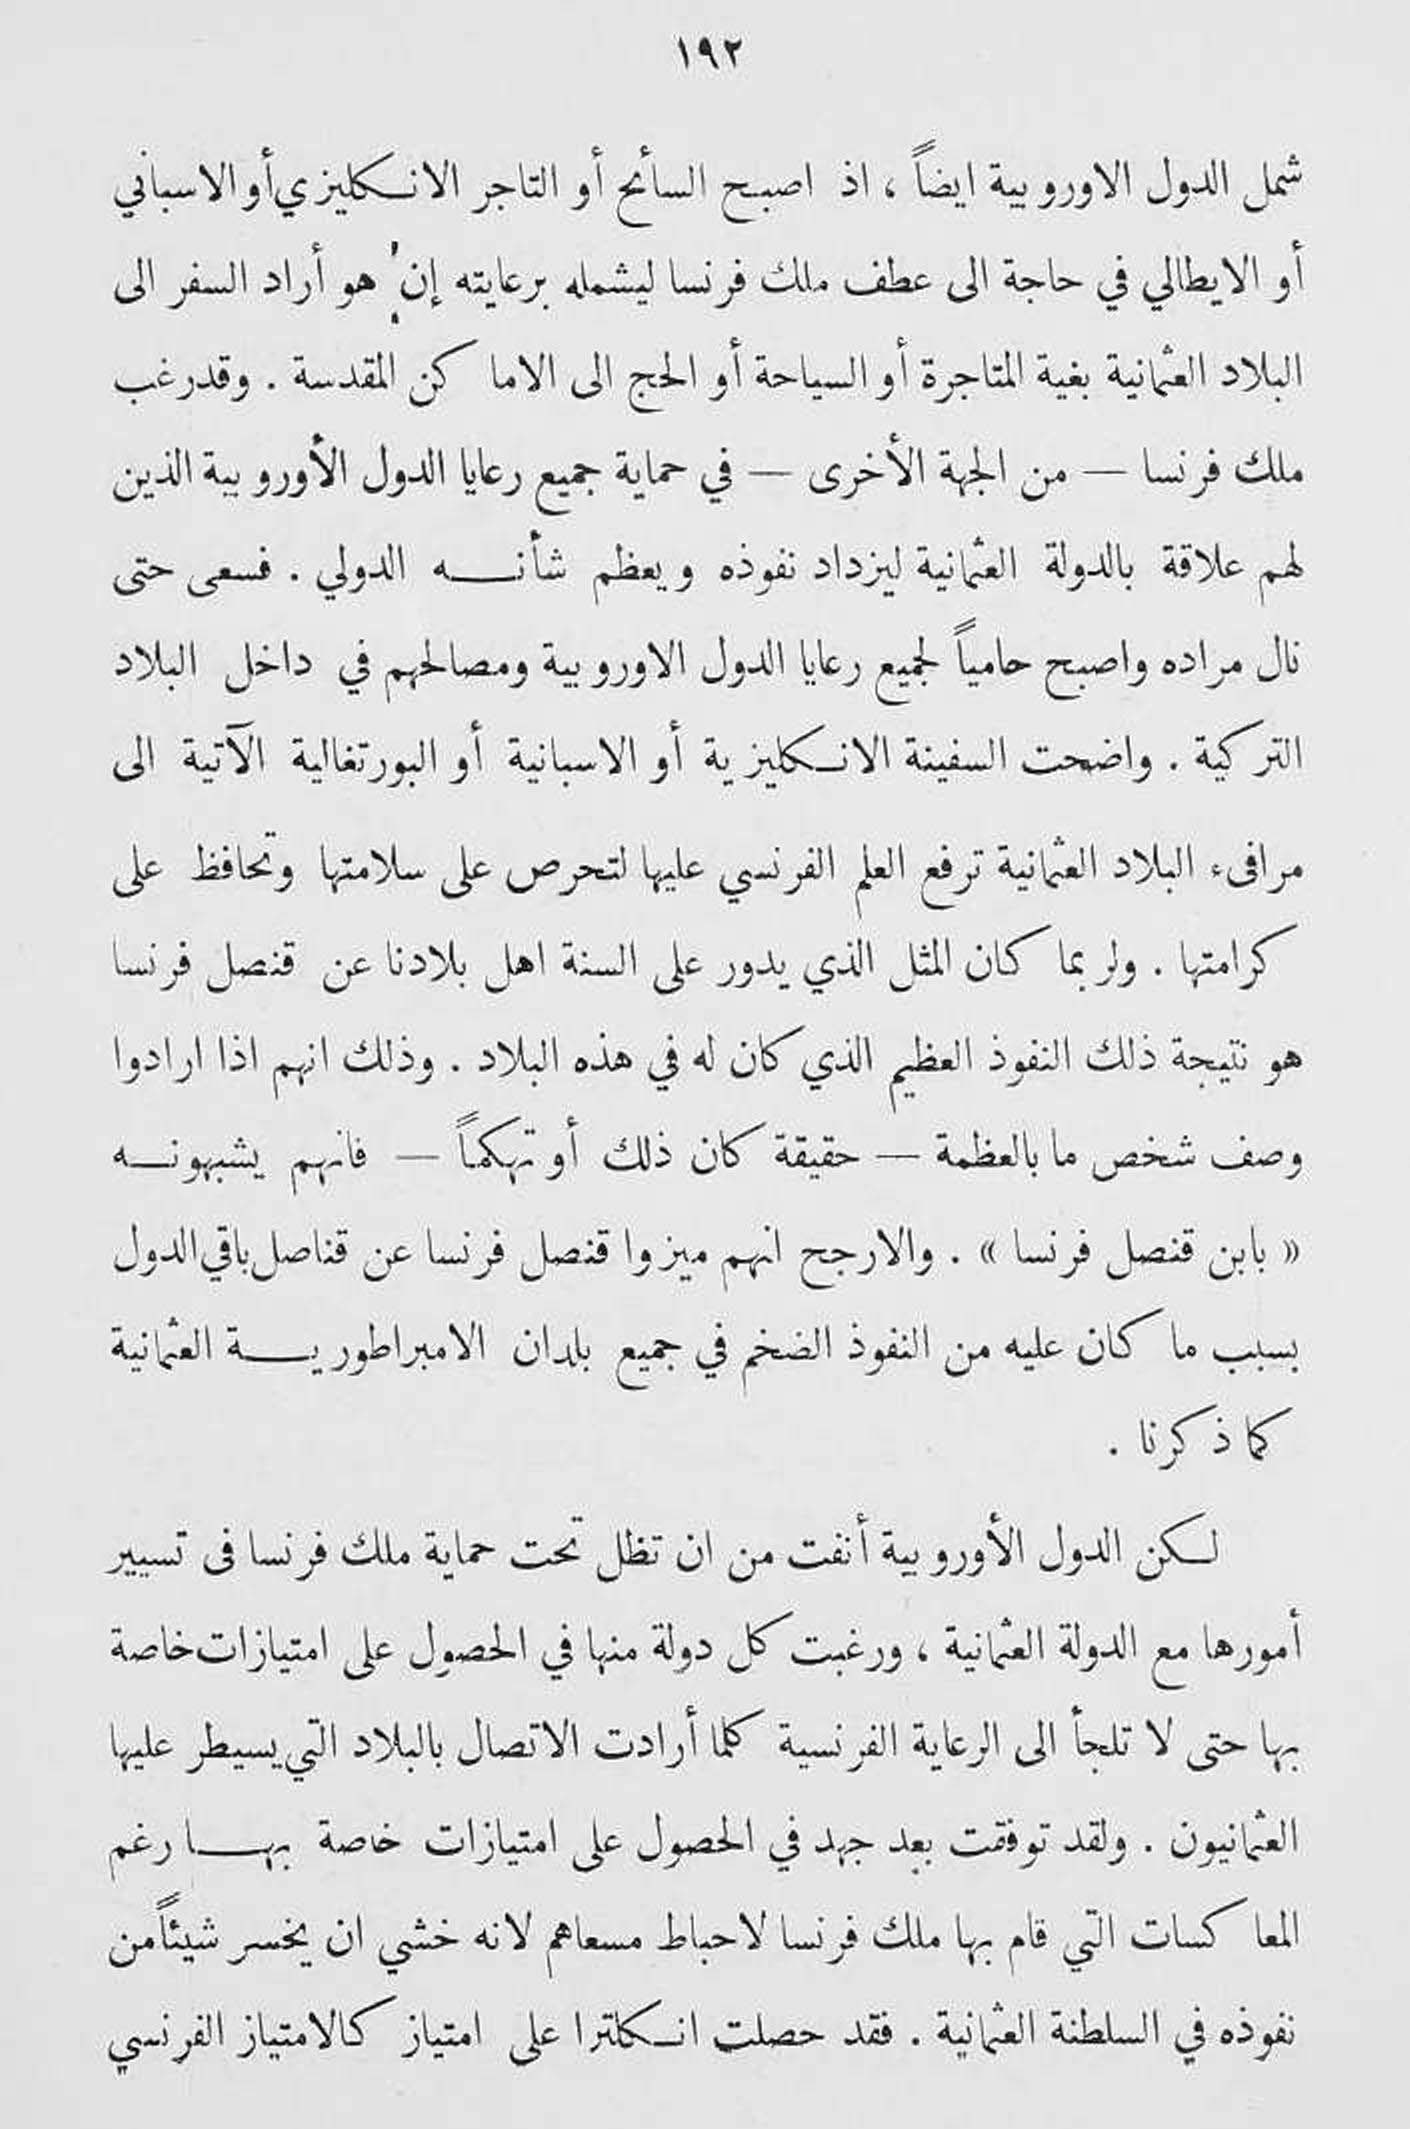 ١٩٢
شمل الدول الاوروبية ايضاً ، اذ اصبح السأئح أو التاجر الانكليزي أو الاسباني
أو الايطالي في حاجة الى عطف ملك فرنسا ليشمله برعايته إن هو أراد السفر الى
البلاد العثمانية بغية المتاجرة أو السياحة أو الحج الى الاماكن المقدسة . وقد رغب
ملك فرنسا — من الجهة الأخرى — في حماية جميع رعايا الدول الأوروبية الذين
لهم علاقة بالدولة العثمانية ليزداد نفوذه ويعظم شأنه الدولي . فسعى حتى
نال مراده واصبح حامياً لجميع رعايا الدول الاوروبية ومصالحهم في داخل البلاد
التركية . واضحت السفينة الانكليزية أو الاسبانية أو البورتغالية الآتية الى
مرافىء البلاد العثمانية ترفع العلم الفرنسي عليها لتحرص على سلامتها وتحافظ على
كرامتها . ولربما كان المثل الذي يدور على السنة اهل بلادنا عن قنصل فرنسا
هو نتيجة ذلك النفوذ العظيم الذي كان له في هذه البلاد . وذلك انهم اذا ارادوا
وصف شخص ما بالعظمة — حقيقة كان ذلك أو تهكماً — فانهم يشبهونه
« بابن قنصل فرنسا » . والارجح انهم ميزوا قنصل فرنسا عن قناصل باقي الدول
بسبب ما كان عليه من النفوذ الضخم في جميع بلدان الامبراطورية العثمانية
كما ذكرنا .
لكن الدول الأوروبية أنفت من ان تظل تحت حماية ملك فرنسا فى تسيير
أمورها مع الدولة العثمانية ، ورغبت كل دولة منها في الحصول على امتيازات خاصة
بها حتى لا تلجأ الى الرعاية الفرنسية كلما أرادت الاتصال بالبلاد التي يسيطر عليها
العثمانيون . ولقد توفقت بعد جهد في الحصول على امتيازات خاصة بها رغم
المعاكسات التي قام بها ملك فرنسا لاحباط مسعاهم لانه خشي ان يخسر شيئاً من
نفوذه في السلطنة العثمانية . فقد حصلت انكلترا على امتياز كالامتياز الفرنسي